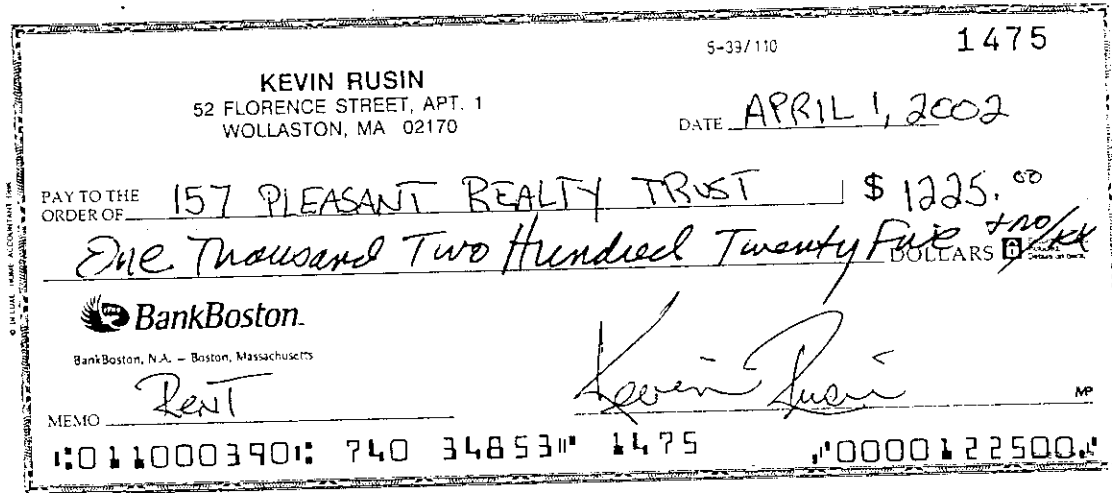 5-39/110 1475
KEVIN RUSIN
52 FLORENCE STREET, APT. 1
WOLLASTON, MA 02170
DATE APRIL 1, 2002
PAY TO THE ORDER OF 157 PLEASANT REALTY TRUST $ 1225.00
One Thousand Two Hundred Twenty Five + no/xx DOLLARS
BankBoston
BankBoston, N.A. – Boston, Massachusetts
MEMO RENT Kevin Rusin MP
⑆011000390⑆ 740 34853⑈ 1475 ⑈0000122500⑈